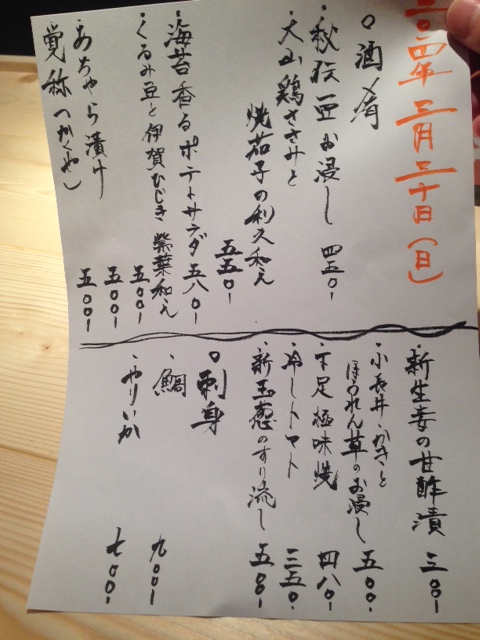 二〇一四年三月三十日(日)
○酒肴
・秋伝豆お浸し 四五〇-
・大山鶏ささみと
焼茄子の利久和え
五五〇-
・海苔香るポテトサラダ 五八〇-
・くるみ豆と伊賀ひじき 紫葉和え
五〇〇-
・あちゃら漬け 五〇〇-
覚弥(かくや) 五〇〇-
・新生姜の甘酢漬 三〇〇-
・小長井かきと
ほうれん草のお浸し 五〇〇-
下足極味焼 四八〇-
・冷しトマト 三五〇-
・新玉葱のすり流し 五〇〇-
○刺身
・鯛 九〇〇-
・やりいか 七〇〇-